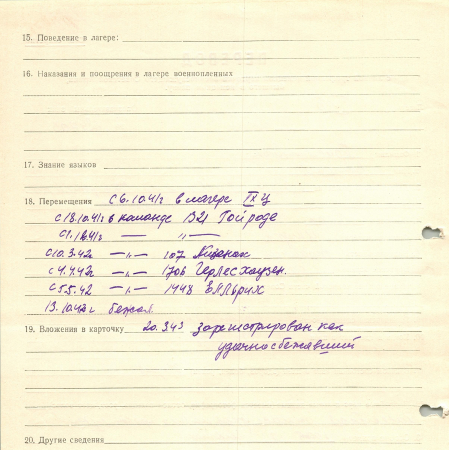 15. Поведение в лагере:
16. Наказания и поощрения в лагере военнопленных
17. Знание языков
18. Перемещения с 6.10.41г в лагере IX Ц
с 18.10.41г в команде 1321 Гойроде
с 1.12.41г — „ —
с 10.3.42 — „ — 107
с 4.4.42г — „ — 1706 Герлесхаузен.
с 5.5.42 — „ — 1448 Элльрих
13.10.42г бежал.
19. Вложения в карточку 20.3.43 зарегистрирован как
удачно сбежавший
20. Другие сведения